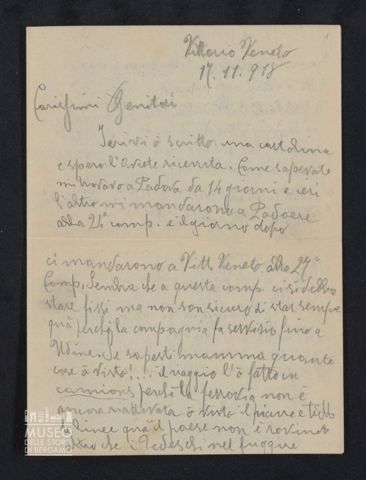 Vittorio Veneto
17.11.918
Carissimi Genitori
Ierivi ò scritto una cartolina
e spero l'avrete ricevuta. Come sapevate
mi trovavo a Padova da 14 giorni e ieri
l'altro mi mandarono a Padova
alla 24ª comp. e il giorno dopo
ci mandarono a Vitt. Veneto alla 27ª
Comp. Sembra che a questa comp. ci si debba
stare fissi ma non son sicuro di star sempre
quà perchè la compagnia fa servizio fino a
Udine. Se sapesti mamma quante
cose ò visto!.... il viaggio l'ò fatto in
camions perchè la ferrovia non è
ancora riattivata ò visto il piave e tutte
linee quà il paese non è rovinato
che i Tedeschi nel fuggire
MUSEO
DELLE STORIE
DI BERGAMO